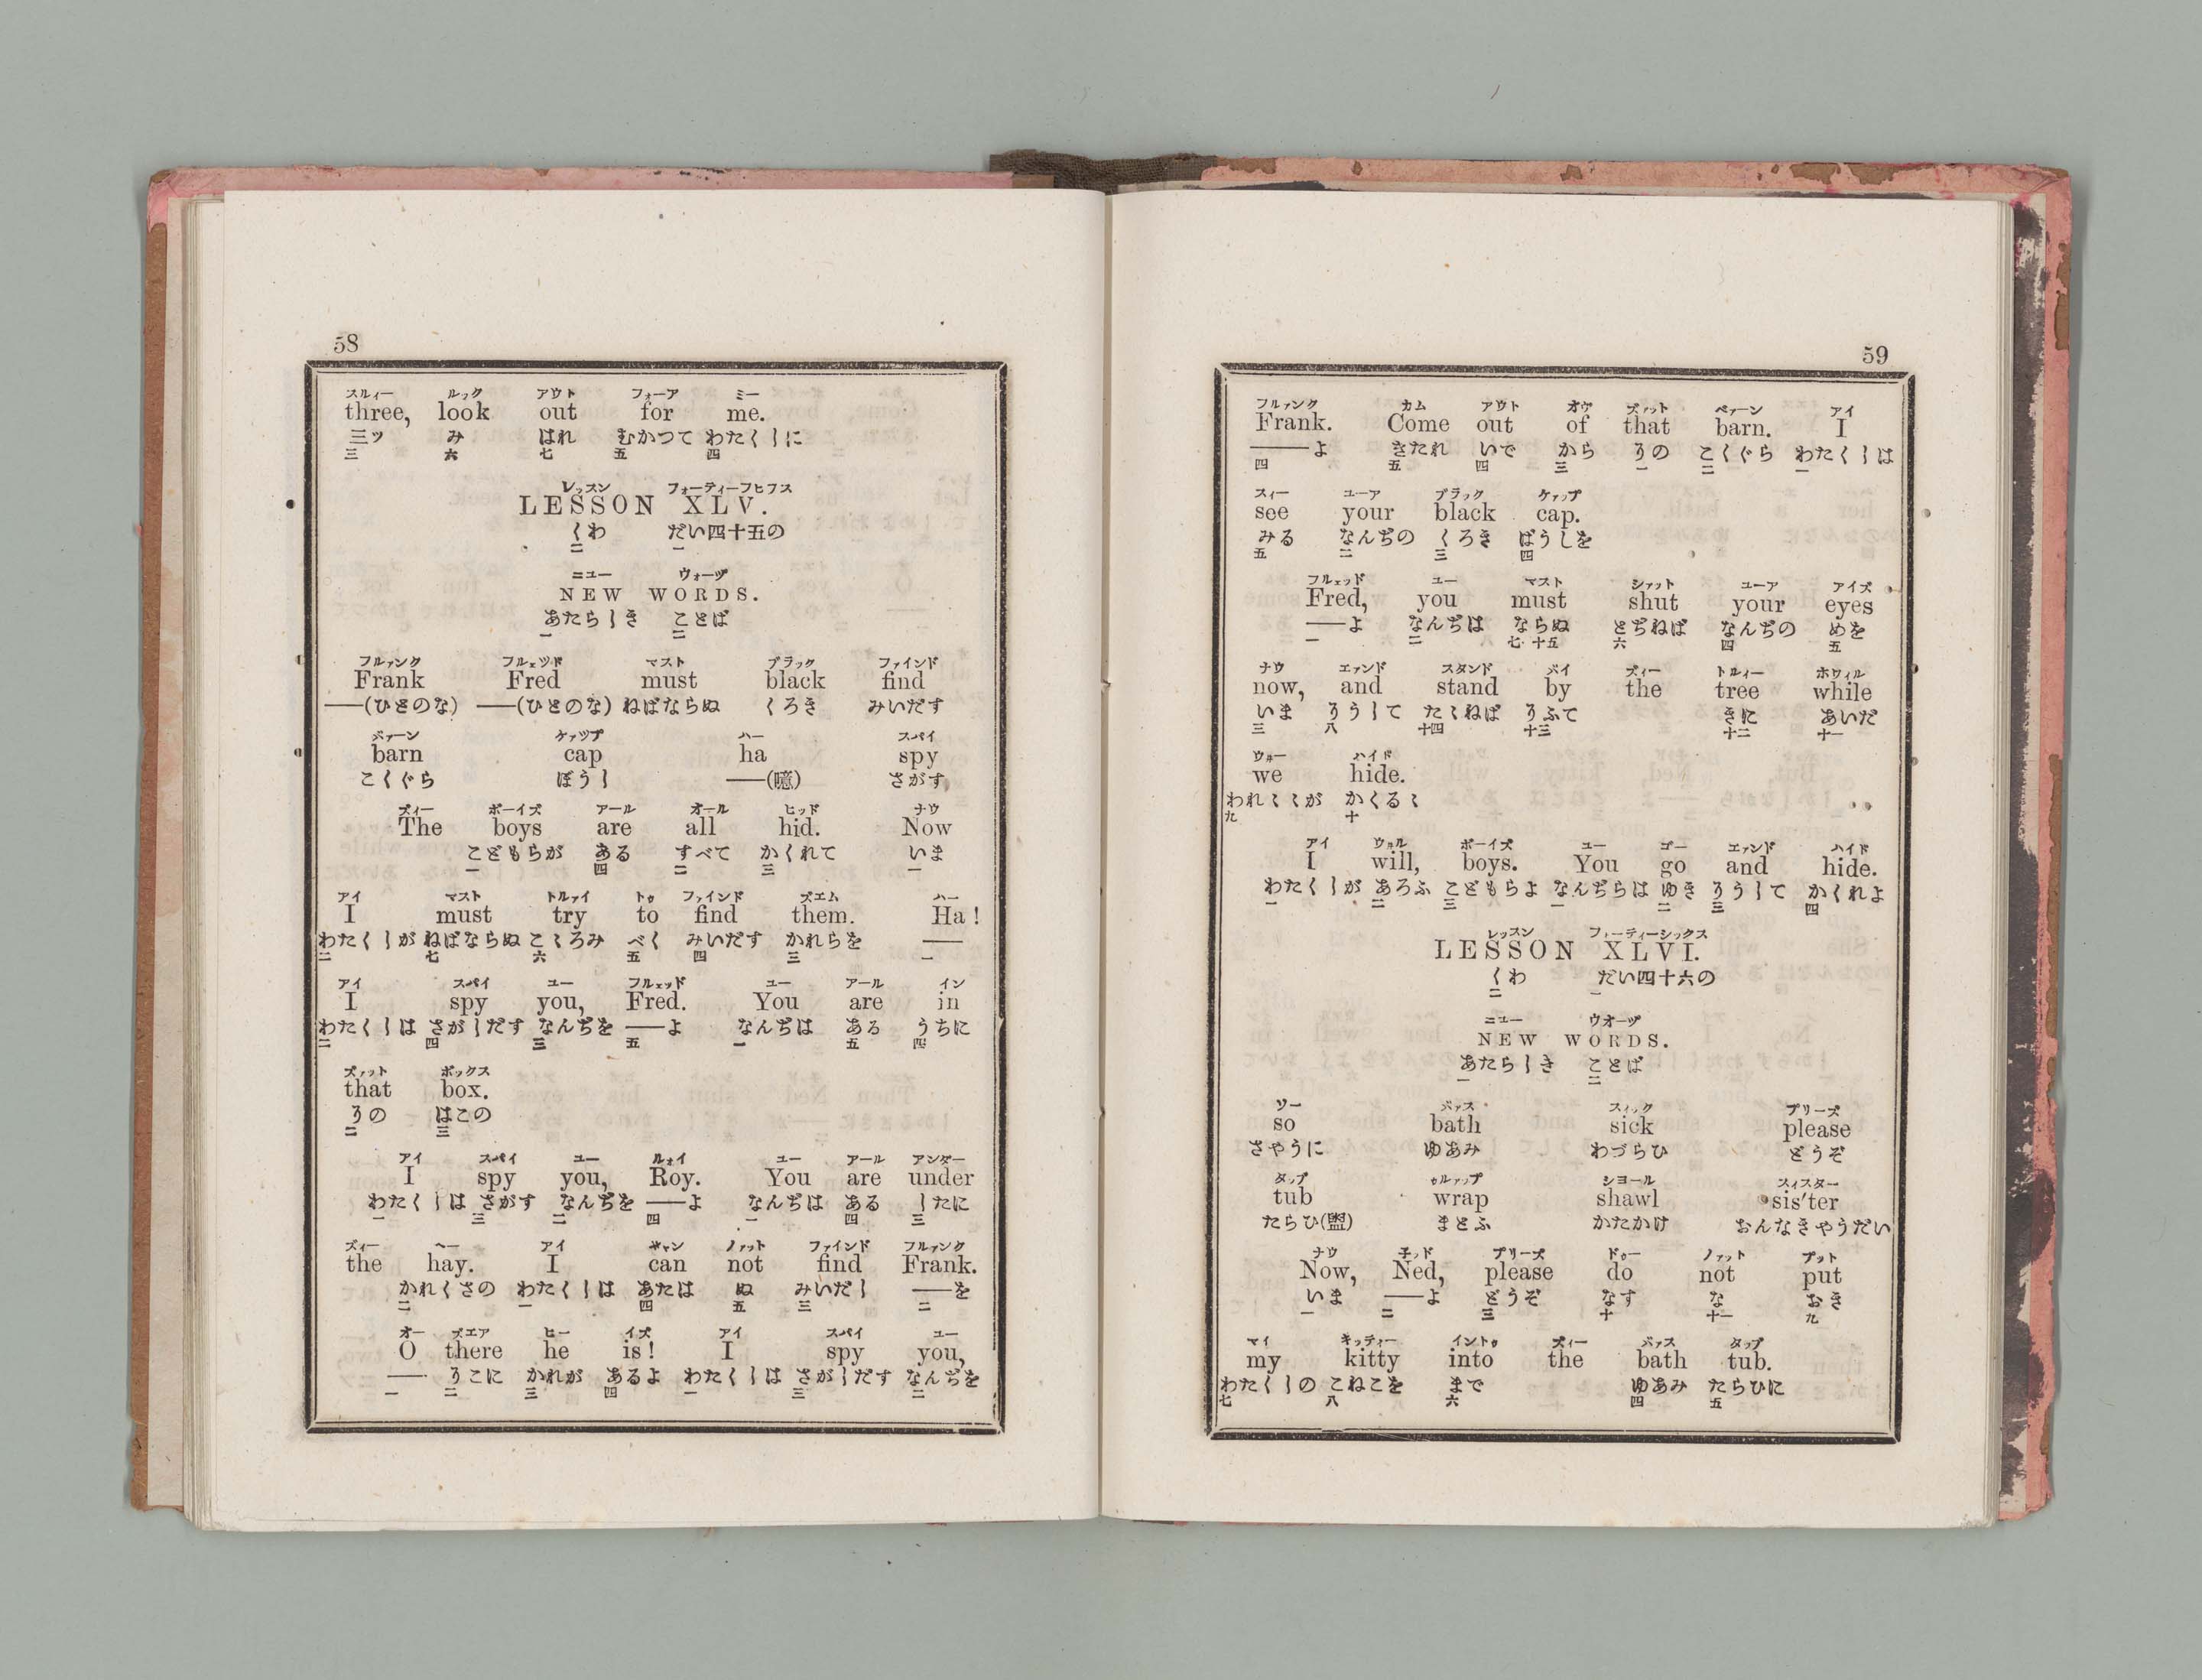 58
スルィー ルック アウト フォーア ミー
three, look out for me.
三ッ み はれ むかつて わたく〡に
三 六 七 五 四
レッスン フォーティーフヒフス
LESSON XLV.
くわ だい四十五の
二 一
ニユー ウォーヅ
NEW WORDS.
あたら〡き ことば
一 二
フルァンク フルェツド マスト ブラック ファインド
Frank Fred must black find
——(ひとのな) ——(ひとのな) ねばならぬ くろき みいだす
バァーン ケァツプ ハー スパイ
barn cap ha spy
こくぐら ぼう〡 ——(噫) さがす
ズィー ボーイズ アール オール ヒッド ナウ
The boys are all hid. Now
こどもらが ある すべて かくれて いま
一 四 二 三 一
アイ マスト トルァイ トゥ ファインド ズエム ハー
I must try to find them. Ha!
わたく〡が ねばならぬ こゝろみ べく みいだす かれらを ——
二 七 六 五 四 三 一
アイ スパイ ユー フルェッド ユー アール イン
I spy you, Fred. You are in
わたく〡は さが〡だす なんぢを ——よ なんぢは ある うちに
二 四 三 五 一 五 四
ズァット ボックス
that box.
そこの はこの
二 三
アイ スパイ ユー ルォイ ユー アール アンダー
I spy you, Roy. You are under
わたく〡は さがす なんぢを ——よ なんぢは ある 〡たに
一 三 二 四 一 四 三
ズィー ヘー アイ キャン ノァット ファインド フルァンク
the hay. I can not find Frank.
かれくさの わたく〡は あたは ぬ みいだ〡 ——を
二 一 四 五 三 二
オー ズエア ヒー イズ アイ スパイ ユー
O there he is! I spy you,
—— そこに かれが あるよ わたく〡は さが〡だす なんぢを
一 二 三 四 一 三 二
59
フルァンク カム アウト オヴ ズァット ベァーン アイ
Frank. Come out of that barn. I
——よ きたれ いで から その こくぐら わたく〡は
四 五 四 三 一 二 一
スィー ユーア ブラック ケァップ
see your black cap.
みる なんぢの くろき ばうしを
五 二 三 四
フルェッド ユー マスト シァット ユーア アイズ
Fred, you must shut your eyes
——よ なんぢは ならぬ とぢねば なんぢの めを
一 二 七 十五 六 四 五
ナウ エァンド スタンド バイ ズィー トルィー ホワィル
now, and stand by the tree while
いま そう〡て たゝねば そふて きに あいだ
三 八 十四 十三 十二 十一
ウォー ハイド
we hide.
われゝゝが かくるゝ
九 十
アイ ウォル ボーイズ ユー ゴー エァンド ハイド
I will, boys. You go and hide.
わたく〡が あろふ こどもらよ なんぢらは ゆき そう〡て かくれよ
一 二 三 一 二 三 四
レッスン フォーティーシックス
LESSON XLVI.
くわ だい四十六の
二 一
ニユー ウオーヅ
NEW WORDS.
あたら〡き ことば
一 二
ソー バァス スィック プリーズ
so bath sick please
さやうに ゆあみ わづらひ どうぞ
タップ ゥルァップ シヨール スィスター
tub wrap shawl sis'ter
たらひ(盥) まとふ かたかけ おんなきやうだい
ナウ 子ッド プリーズ ドゥー ノァット プット
Now, Ned, please do not put
いま ——よ どうぞ なす な おき
一 二 三 十 十一 九
マイ キッティー イントゥ ズィー バァス タップ
my kitty into the bath tub.
わたく〡の こねこを まで ゆあみ たらひに
七 八 六 四 五